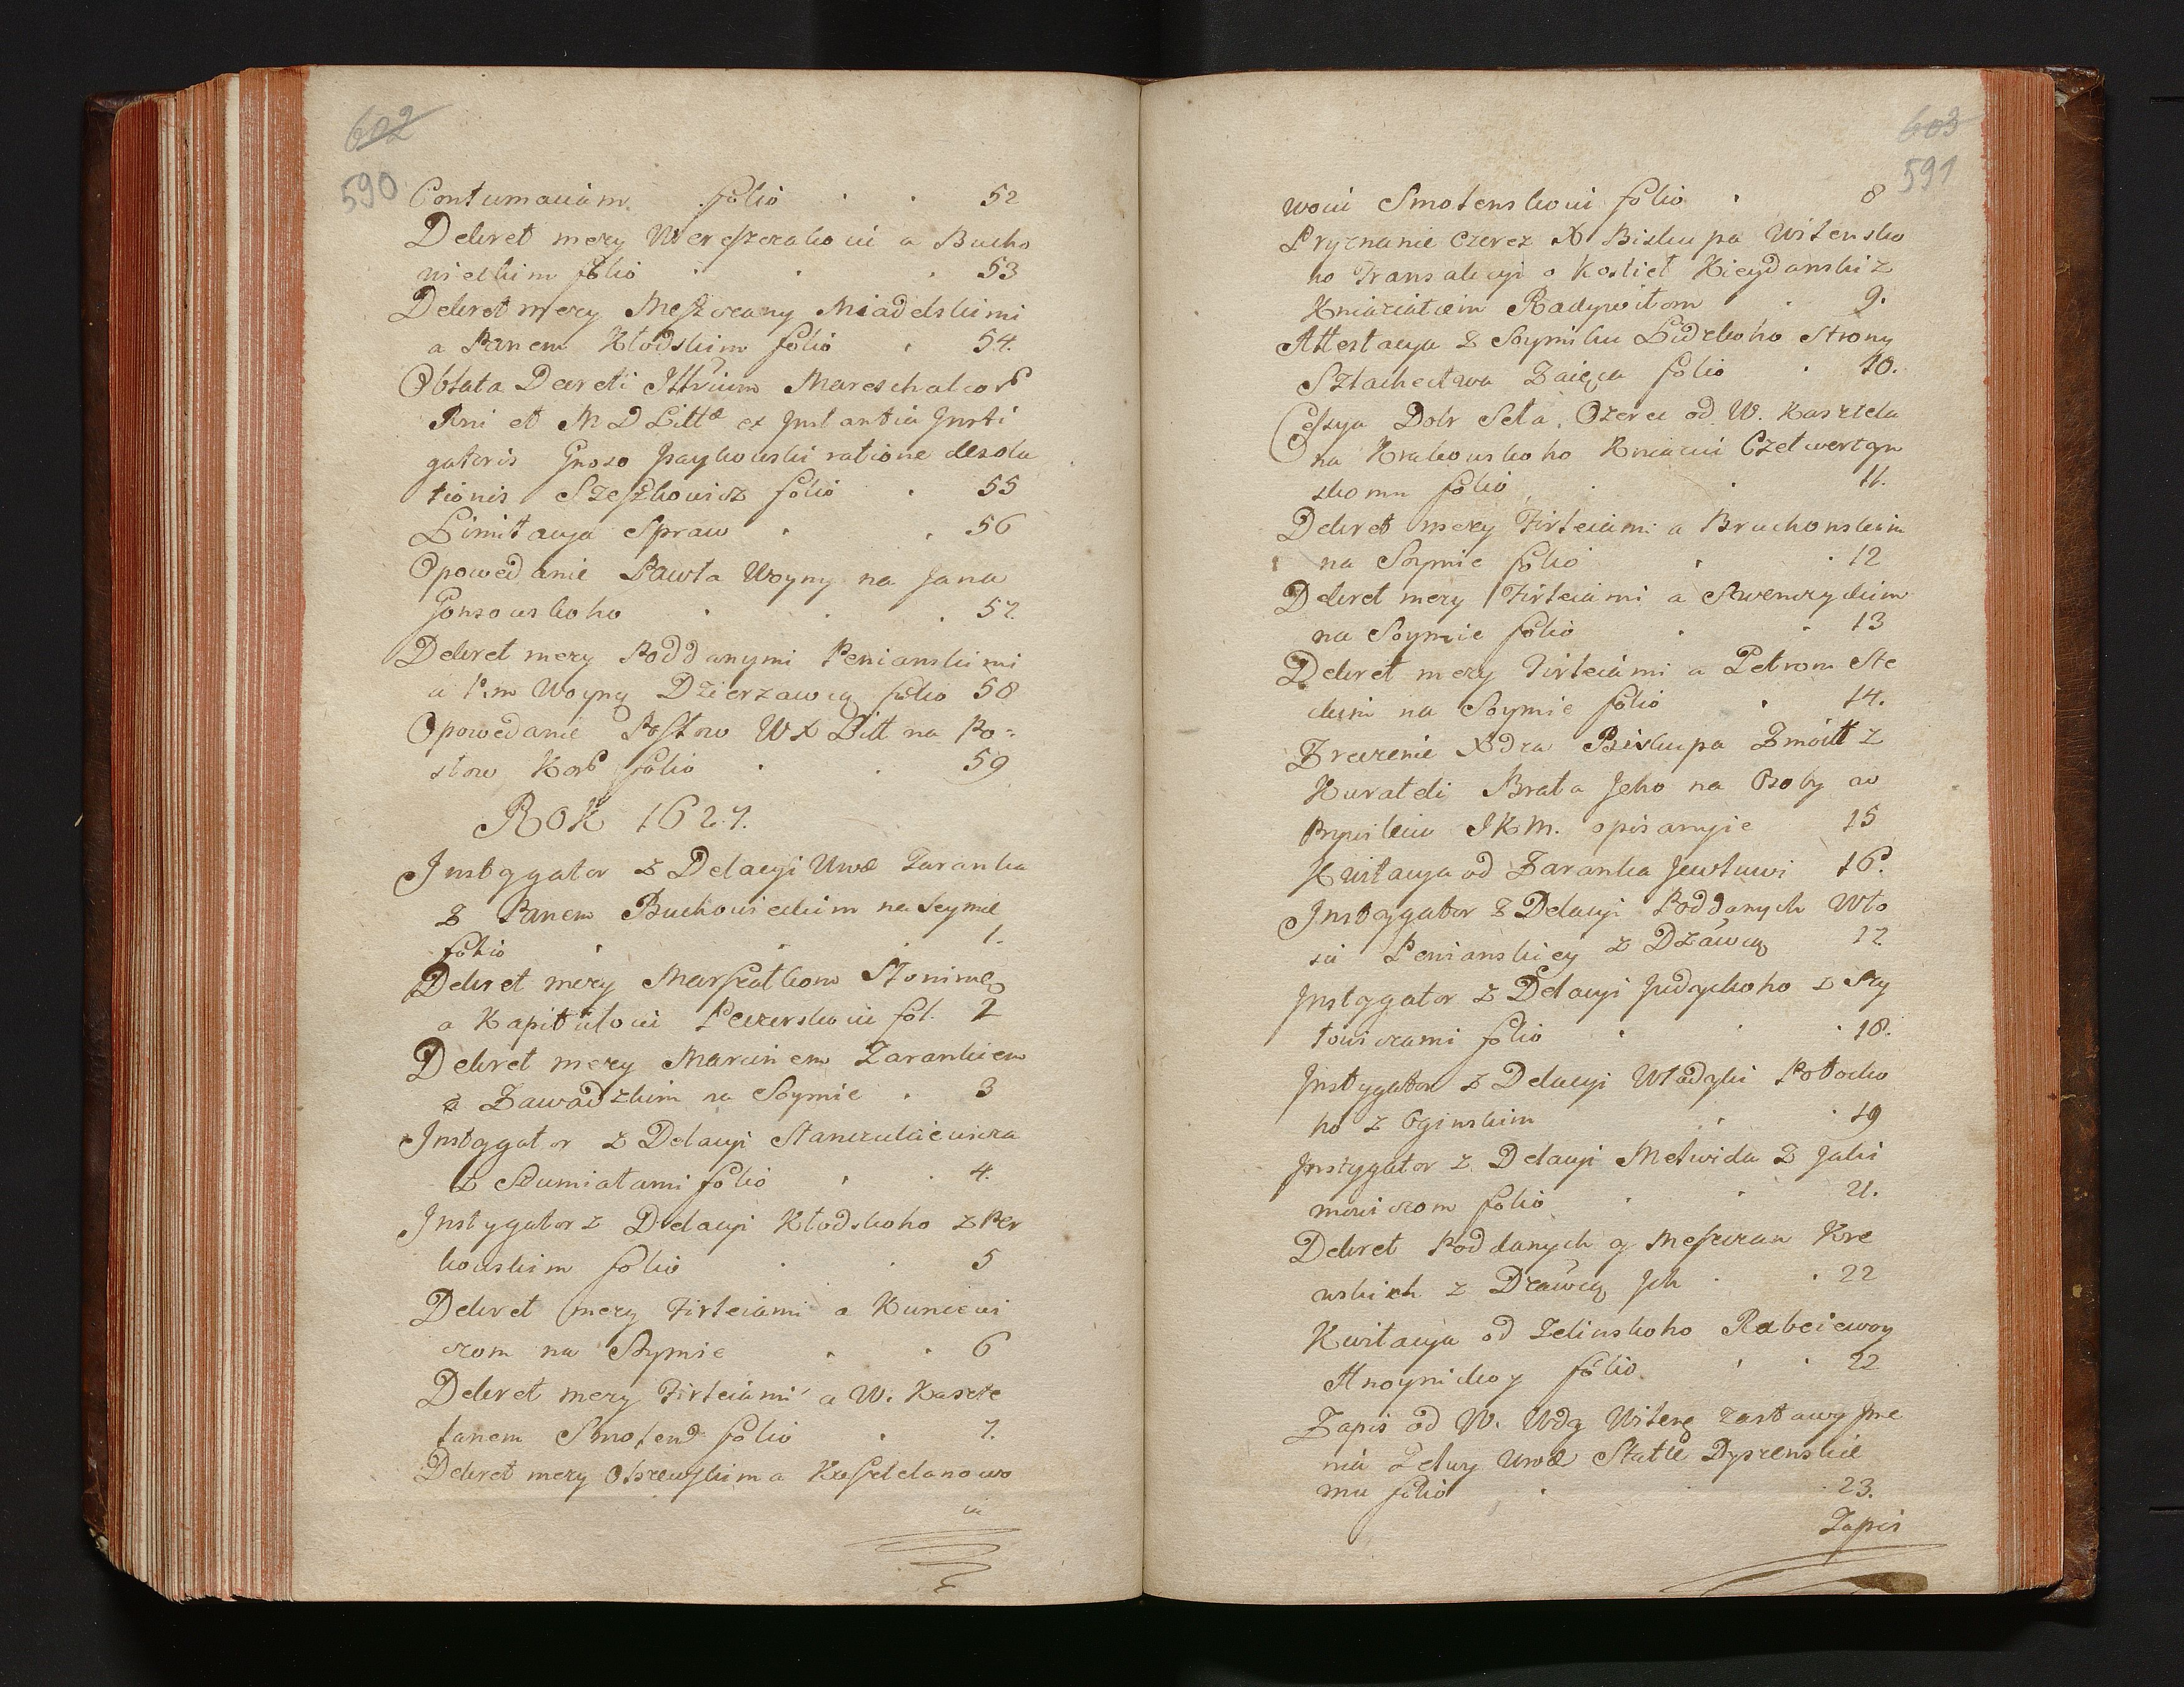 602
590
Contumaciam folio 52
Dekret mezy Wereszczakoiu a Bucho
wieckim folio 53
Dekret mezy Meszczany Miadelskimi
a Panem Kłodskim folio 54.
Oblata Decreti Illrium Mareschalcor
Rni et M D Litt ex Instantia Insti
gatoris Gnoso Jaykowski ratione desola
tionis Szeszkowicz folio 55
Limitacya Spraw 56
Opowedanie Pawła Woyny na Jana
Gonsowskoho 57.
Dekret mezy Poddanymi Penianskimi
a Pm Woyną Dzierzawcą folio 58
Opowedanie Posłow WX Litt na Po=
słow Kor folio 59
ROK 1627.
Instygator z Delacyi Uwe Taranka
z Panem Buchowieckim na Seymie
folio 1.
Dekret mezy Marszałkom Słonimę
a Kapitułoiu Peczerskoiu fol. 2
Dekret mezy Marcinem Zarankiem
a Zawadzkim na Soymie 3
Instygator z Delacyi Stanczukiewicza
z Szumiałami folio 4.
Instygator z Delacyi Kłodskoho z Per
kowskim folio 5
Dekret mezy Firleiami a Kuncewi
czom na Soymie 6
Dekret mezy Firleiami a W. Kaszte
lanem Smolen folio 7.
Dekret mezy Olszewskim a Kasztelanowo
iu
603
591
woiu Smolenskoiu folio 8
Pryznanie czerez X Biskupa Wilensko
ho Transakcyi o Kosiieł Kieydanski z
Kniaziatiem Radywiłom 9.
Attestacya z Soymiku Lidzkoho Strony
Szlachectwa Zaięca folio 10.
Cessya Dobr Seła Ozerce od W. Kasztela
na Krakowskoho Kniaziu Czetwertyn
skomu folio 11.
Dekret mezy Firleiami a Bruchonskim
na Soymie folio 12
Dekret mezy Firleiami a Swenczyckim
na Soymie folio 13
Dekret mezy Firleiami a Petrom Ste
ckim na Soymie folio 14.
Zreczenie Xdza Biskupa Zmoitt z
Kurateli Brata Jeho na Osoby w
Prywileiu JKM. opisanyie 15
Kwitacya od Zaranka Jewłuwi 16.
Instygator z Delacyi Poddanych Wło
sti Penianskiey z Dzawcą 17
Instygator z Delacyi Judyckoho z Szy
łowiczami folio 18.
Instygator z Delacyi Władyki Połocko
ho z Oginskim 19
Instygator z Delacyi Melwida z Jaki
mowiczom folio 21.
Dekret Poddanych y Meszczan Kre
wskich z Dzawcą Jch 22
Kwitacya od Zelinskoho Rabeiewoy
Hnoynickoy folio 22
Zapis od W. Wdy Wileng zastawny Jme
nia Zelwy Uwe Statie Dyszenskie
mu folio 23.
Zapis